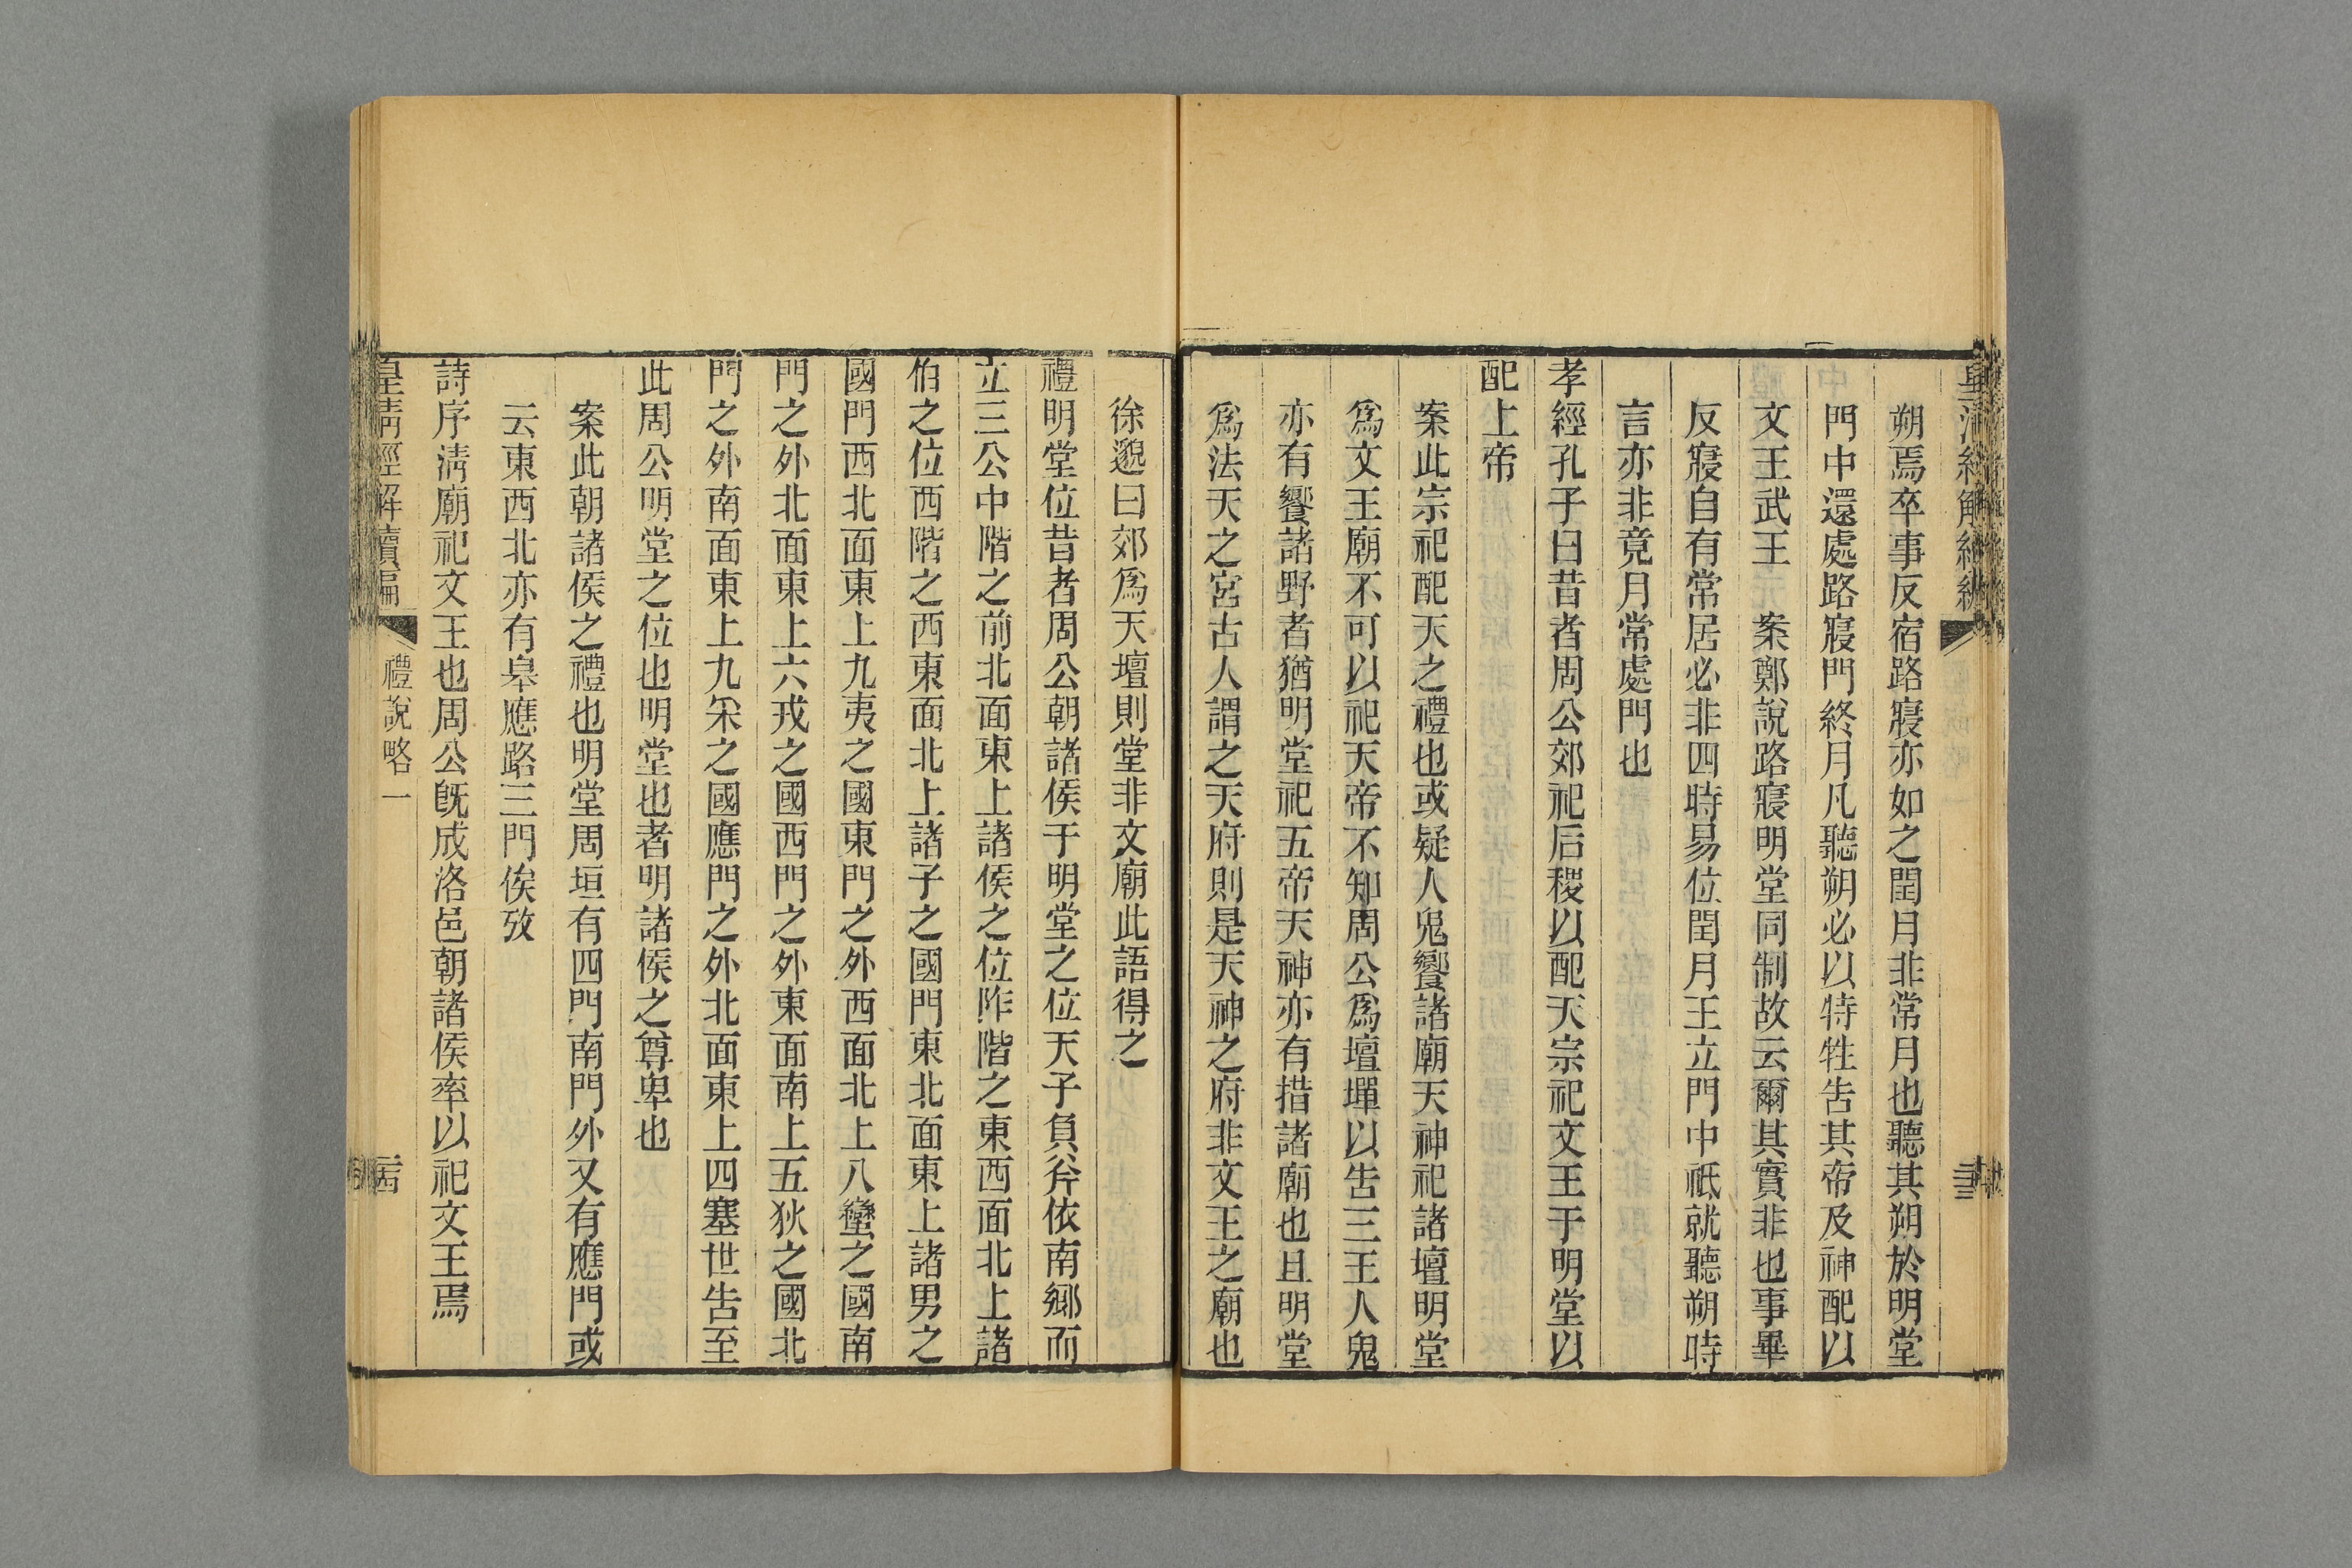 朔焉卒事反宿路寢亦如之閏月非常月也聽其朔於明堂
門中還處路寢門終月凡聽朔必以特牲告其帝及神配以
文王武王　案鄭說路寢明堂同制故云爾其實非也事畢
反寢自有常居必非四時易位閏月王立門中祗就聽朔時
言亦非竟月常處門也
孝經孔子曰昔者周公郊祀后稷以配天宗祀文王于明堂以
配上帝
案此宗祀配天之禮也或疑人鬼饗諸廟天神祀諸壇明堂
爲文王廟不可以祀天帝不知周公爲壇墠以告三王人鬼
亦有饗諸野者猶明堂祀五帝天神亦有措諸廟也且明堂
爲法天之宮古人謂之天府則是天神之府非文王之廟也
徐邈曰郊爲天壇則堂非文廟此語得之
禮明堂位昔者周公朝諸侯于明堂之位天子負斧依南鄉而
立三公中階之前北面東上諸侯之位阼階之東西面北上諸
伯之位西階之西東面北上諸子之國門東北面東上諸男之
國門西北面東上九夷之國東門之外西面北上八蠻之國南
門之外北面東上六戎之國西門之外東面南上五狄之國北
門之外南面東上九采之國應門之外北面東上四塞世告至
此周公明堂之位也明堂也者明諸侯之尊卑也
案此朝諸侯之禮也明堂周垣有四門南門外又有應門或
云東西北亦有皋應路三門俟攷
詩序淸廟祀文王也周公旣成洛邑朝諸侯率以祀文王焉
皇淸經解續編　禮說略一